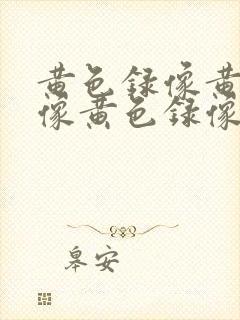 黄色録像黄
像黄色録像
皋安